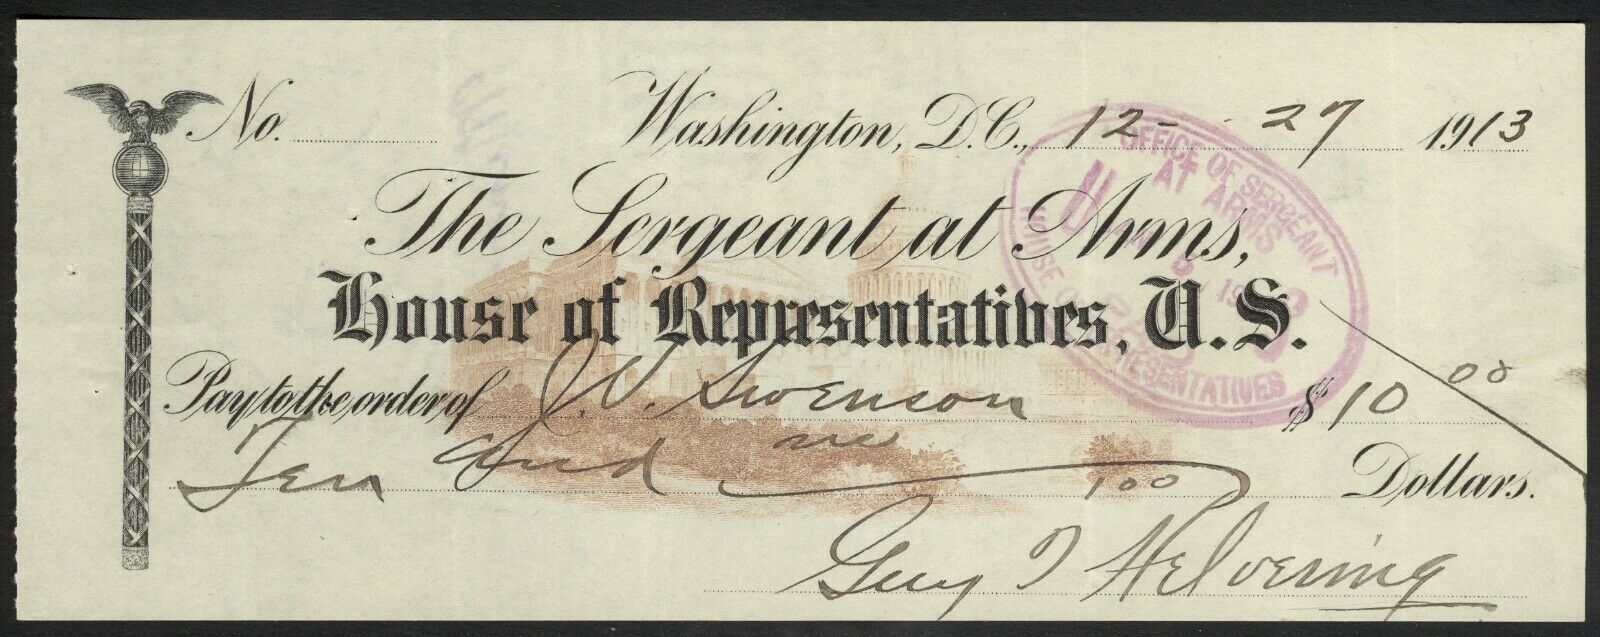 No. Washington, D.C., 12- 27 1913
The Sergeant at Arms,
House of Representatives, U.S.
Pay to the order of J.W. Swenson $10 00
Ten and no/100 Dollars.
Guy T Helvering
OFFICE OF SERGEANT
AT ARMS
HOUSE OF REPRESENTATIVES